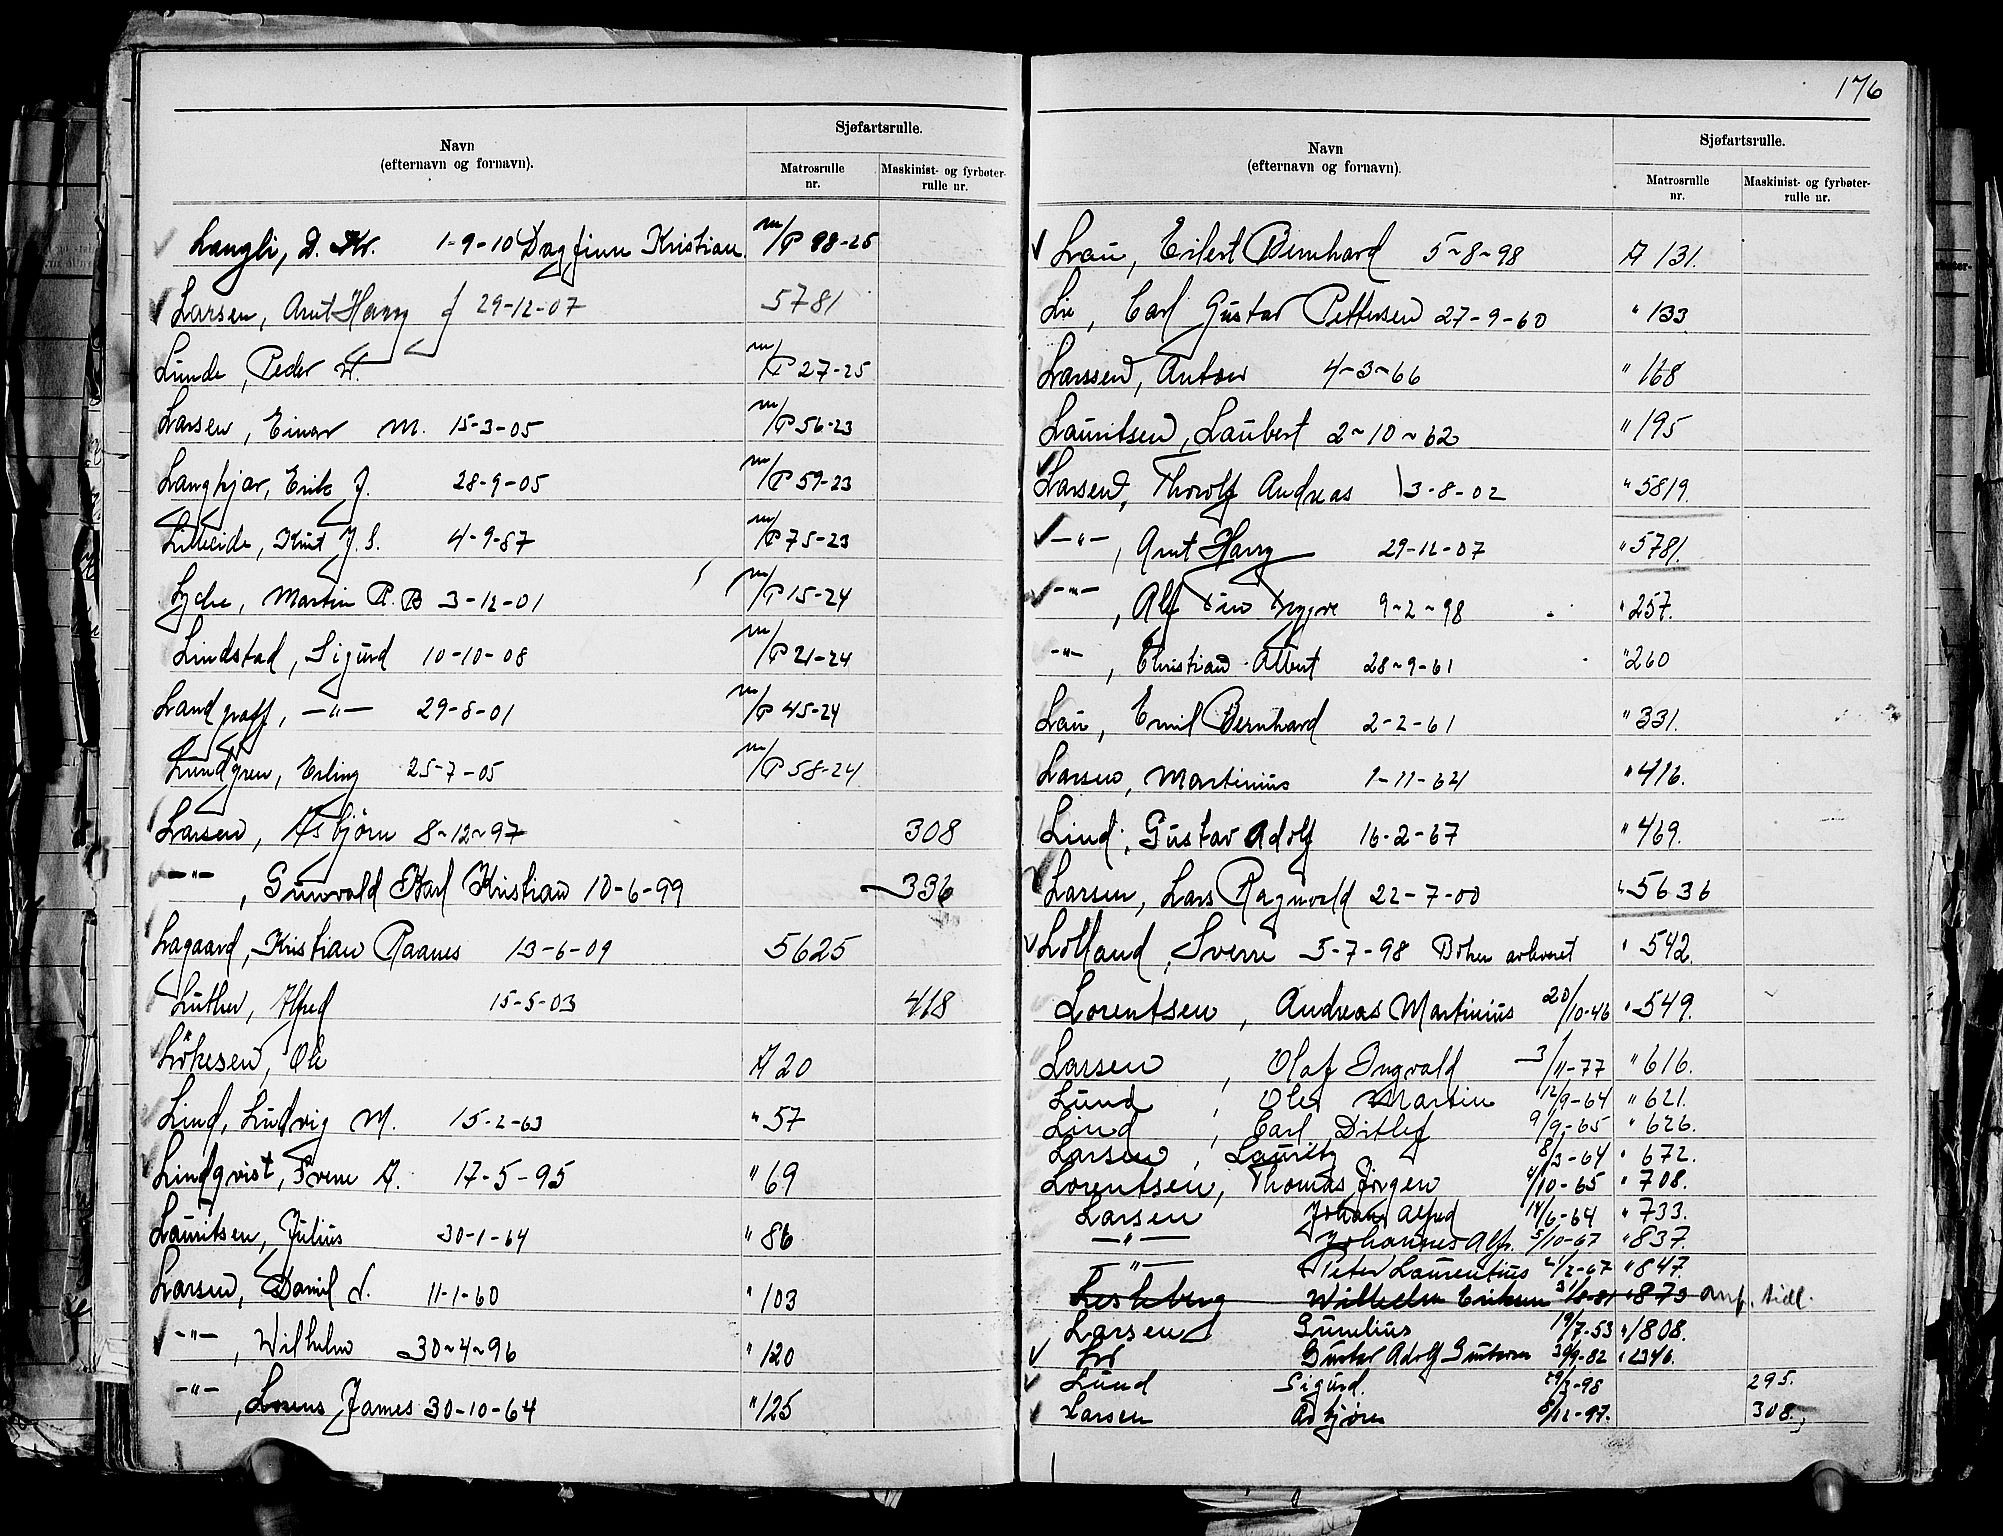 Navn
(efternavn og fornavn).
Sjøfartsrulle.
Matrosrulle
nr.
Maskinist- og fyrbøter-
rulle nr.
Langli, D. Kr. 1-9-10 Dagfinn Kristian m/P 98-25
Larsen, Arnt Harry 29-12-07 5781
Lunde, Peder W. m/P 27-25
Larsen, Einar M. 15-3-05 m/P 56-23
Langkjær, Erik J. 28-9-05 m/P 59-23
Lilleeide, Knut J. S. 4-9-87 m/P 75-23
Lyche, Martin R. B 3-12-01 m/P 15-24
Lindstad, Sigurd 10-10-08 m/P 21-24
Landgraff, -"- 29-8-01 m/P 45-24
Lundgren, Erling 25-7-05 m/P 58-24
Larsen, Asbjørn 8-12-97 308
-"-, Gunvald Karl Kristian 10-6-99 336
Lagaard, Kristian Raanes 13-6-09 5625
Luther, Alfred 15-5-03 418
Lökesen, Ole A 20
Lind, Ludvig M. 15-2-63 " 57
Lindqvist, Svene A. 17-5-95 " 69
Lauritsen, Julius 30-1-64 " 86
Larsen, Daniel L. 11-1-60 " 103
-"-, Wilhelm 30-4-96 " 120
-"-, Lorens James 30-10-64 " 125
176
Navn
(efternavn og fornavn).
Sjøfartsrulle.
Matrosrulle
nr.
Maskinist- og fyrbøter-
rulle nr.
Lau, Eilert Bernhard 5-8-98 A 131.
Lie, Carl Gustav Pettersen 27-9-60 " 133
Larssen, Anton 4-3-66 " 168
Lauritsen, Laubert 2-10-62 " 195
Larsen, Thorolf Andreas 13-8-02 " 5819.
-"-, Arnt Harry 29-12-07 " 5781.
-"-, Alf Finn Trygve 9-2-98 " 257.
-"-, Christian Albert 28-9-61 " 260
Lau, Emil Bernhard 2-2-61 " 331.
Larsen, Martinius 1-11-64 " 416.
Lind, Gustav Adolf 16-2-67 " 469.
Larsen, Lars Ragnvald 22-7-00 " 5636
Lolland, Sverre 5-7-98 Boken avleveret " 542.
Lorentsen, Andreas Martinius 20/10-46 " 549.
Larsen, Olaf Ingvald 3/11-77 " 616.
Lund, Oles Martin 12/9-64 " 621.
Lind, Carl Ditlef 9/9-65 " 626.
Larsen, Lauritz 8/3-64 " 672.
Lorentsen, Thomas Jörgen 4/10-65 " 708.
Larsen Johan Alfred 14/6-64 " 733.
-"- Johannes Alfr. 5/10-67 " 837.
-"- Peter Laurentius 21/2-67 " 847.
Leskeberg Wilhelm Eriksen 31/8-81 " 873 anf. tidl.
Larsen Gunelius 19/7-53 " 1808.
Lie Gustav Adolf Gustavsen 30/9-82 " 2346.
Lund Sigurd. 29/3-98 295.
Larsen Asbjörn 8/12-97. 308.